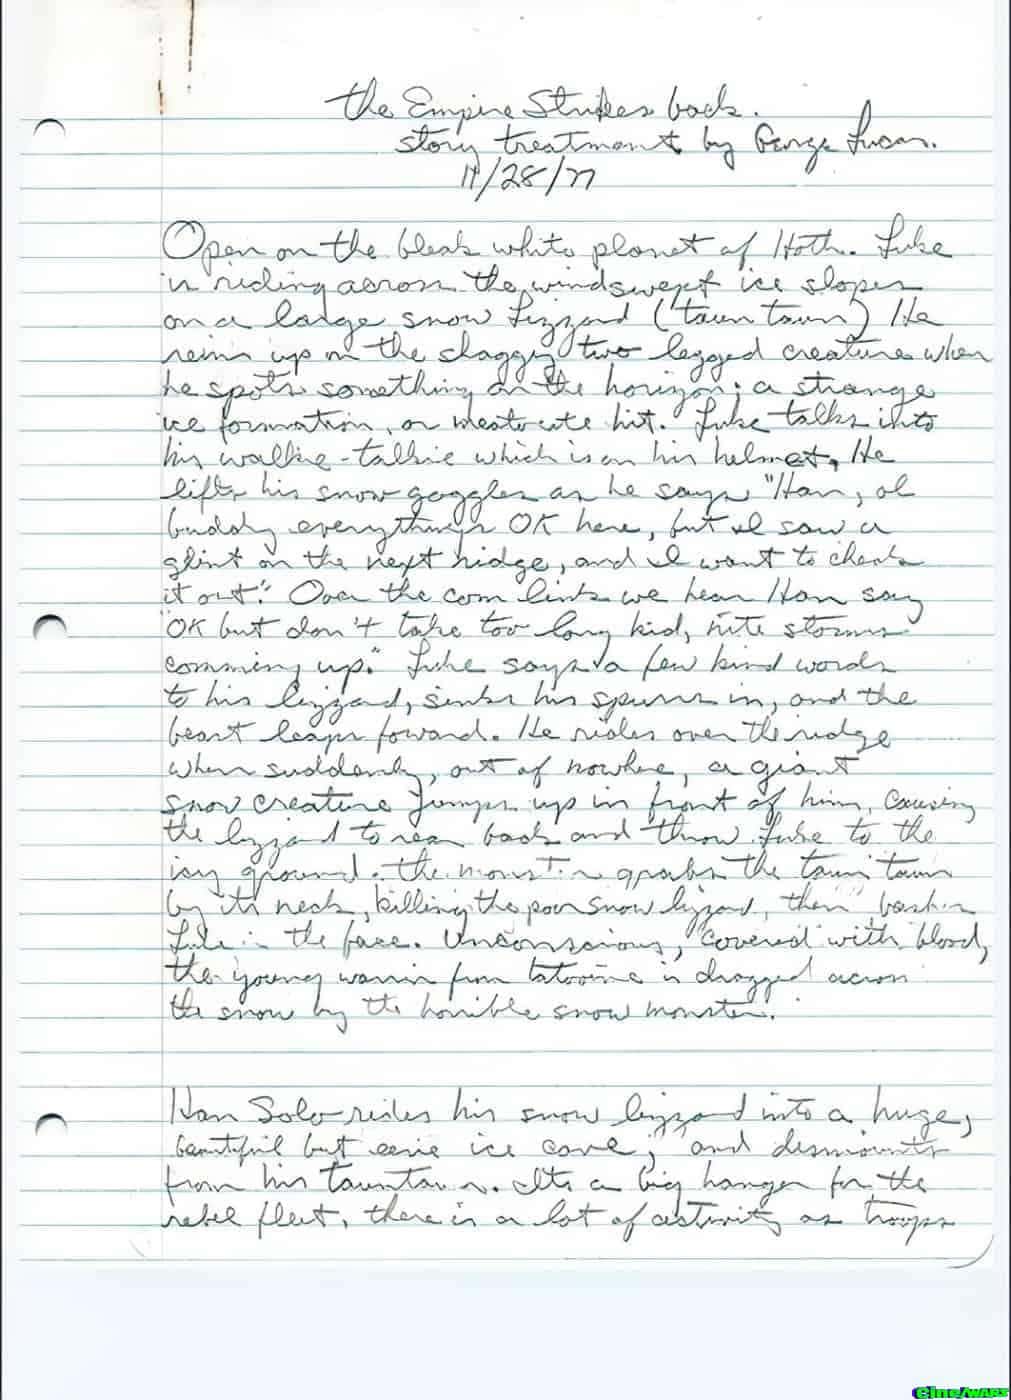 the Empire Strikes back.
story treatment by George Lucas.
11/28/77
Open on the bleak white planet of Hoth. Luke
is riding across the windswept ice slopes
on a large snow Lizzard (taun taun) He
reins up on the shaggy two legged creature when
he spots something on the horizon; a strange
ice formation, or meteorite hit. Luke talks into
his walkie-talkie which is on his helmet. He
lifts his snow goggles as he says "Han, ol
buddy everything's OK here, but I saw a
glint on the next ridge, and I want to check
it out." Over the com link we hear Han say
"OK but don't take too long kid, nite storms
comming up." Luke says a few kind words
to his lizzard, sinks his spurrs in, and the
beast leaps foward. He rides over the ridge
when suddenly, out of nowhere, a giant
snow creature jumps up in front of him, causing
the lizzard to rear back and throw Luke to the
icy ground. the monster grabs the taun taun
by its neck, killing the poor snow lizzard, then bashes
Luke in the face. Unconscious, covered with blood,
the young warrior from tatooine is dragged across
the snow by the horrible snow monster.
Han Solo rides his snow lizzard into a huge,
beautiful but eerie ice cave, and dismounts
from his tauntaun. Its a big hanger for the
rebel fleet, there is a lot of activity as troops
Cine/WARS